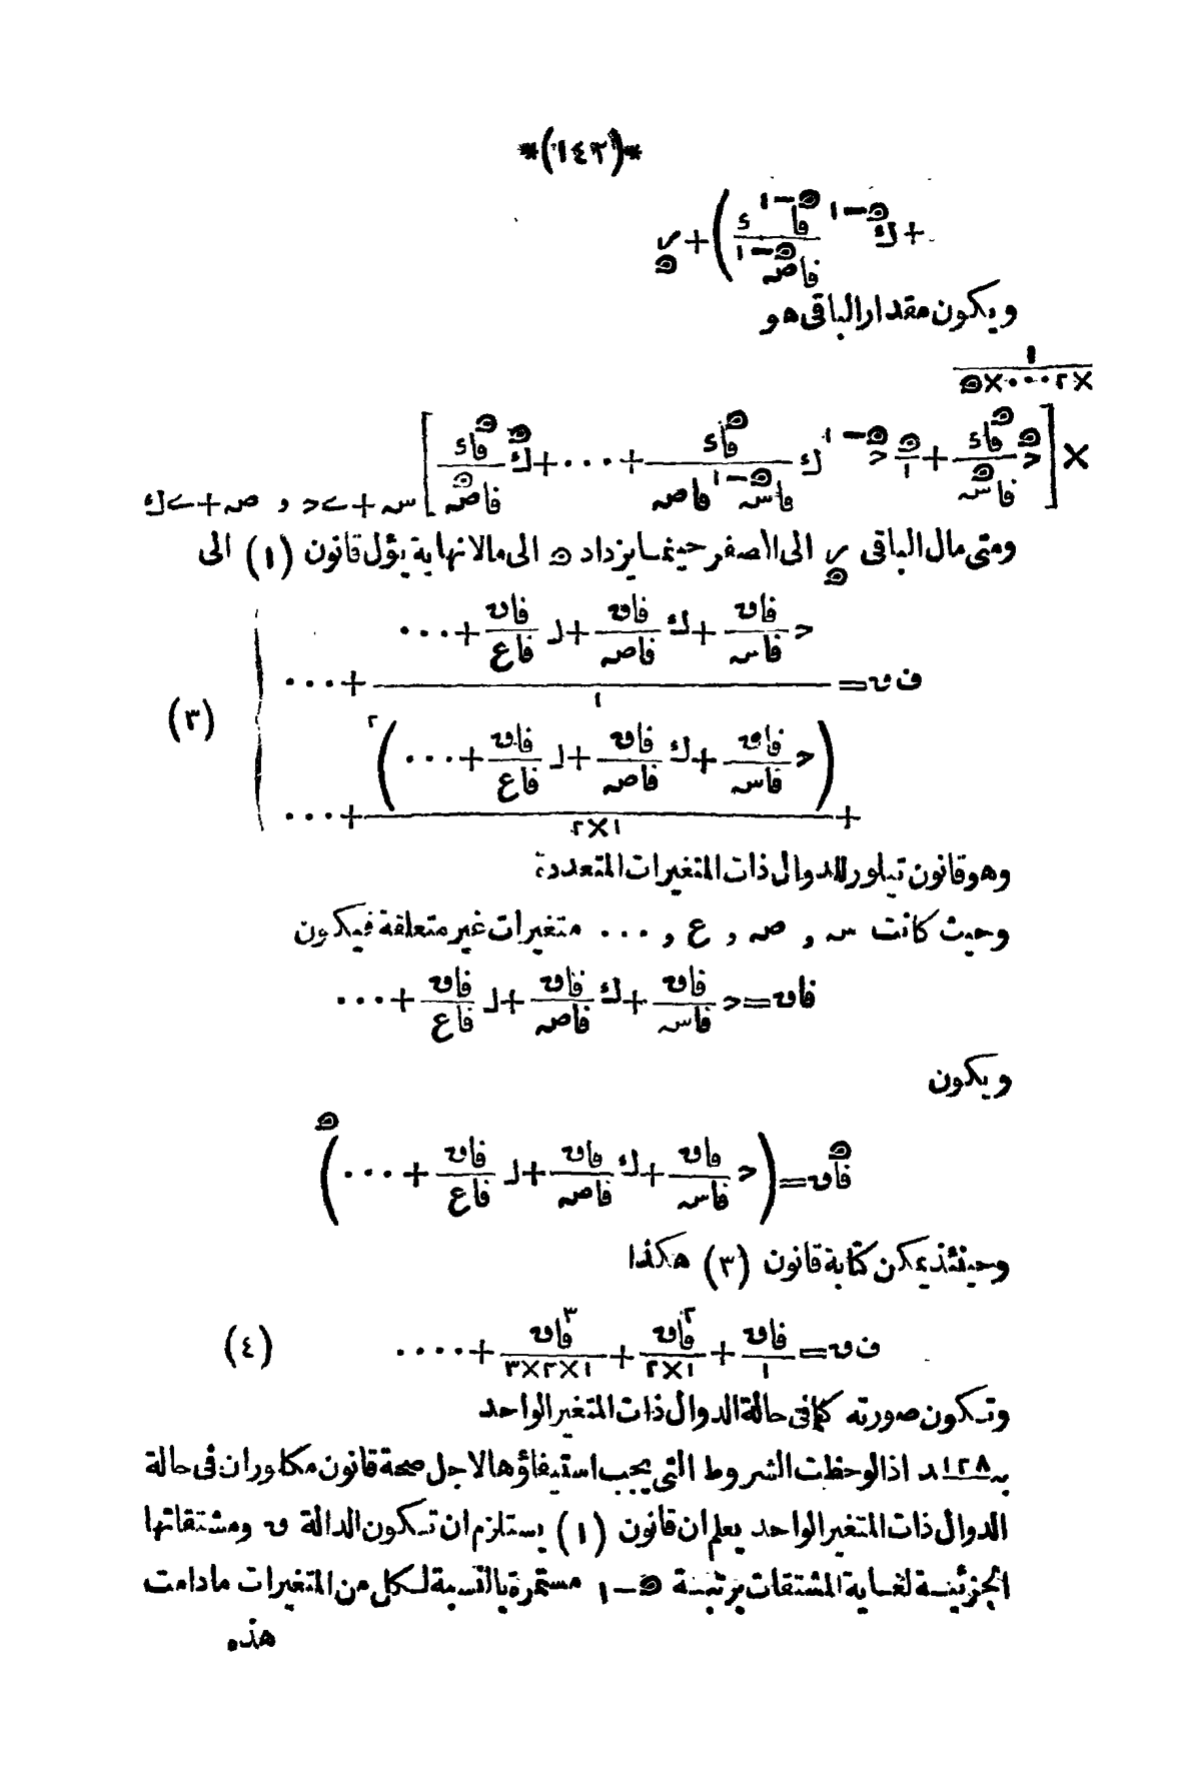 *(١٤٢)*
+ ك^(ھ−١) (فا^(ھ−١) ء / فاصہ^(ھ−١)) + ر_ھ
ويكون مقدار الباقى هو
١ / ×٢...×ھ
×[ح^ھ (فا^ھ ء / فاسہ^ھ) + (ھ/١) ح^(ھ−١) ك (فا^ھ ء / فاسہ^(ھ−١) فاصہ) + ... + ك^ھ (فا^ھ ء / فاصہ^ھ)] سہ+ےح و صہ+ےك
ومتى مال الباقى ر_ھ الى الصفر حينما يزداد ھ الى مالانهاية يؤل قانون (١) الى
ف ں = (ح (فاں/فاسہ) + ك (فاں/فاصہ) + ل (فاں/فاع) + ...) / ١ + ...
(٣)
+ (ح (فاں/فاسہ) + ك (فاں/فاصہ) + ل (فاں/فاع) + ...)^٢ / ١×٢ + ...
وهو قانون تيلور للدوال ذات المتغيرات المتعددة
وحيث كانت سہ و صہ و ع و ... متغيرات غير متعلقة فيكون
فاں = ح (فاں/فاسہ) + ك (فاں/فاصہ) + ل (فاں/فاع) + ...
ويكون
فا^ھ ں = (ح (فاں/فاسہ) + ك (فاں/فاصہ) + ل (فاں/فاع) + ...)^ھ
وحينئذ يمكن كتابة قانون (٣) هكذا
ف ں = فاں/١ + فا^٢ ں / ١×٢ + فا^٣ ں / ١×٢×٣ + .... (٤)
وتكون صورته كما فى حالة الدوال ذات المتغير الواحد
بـ١٢٨ـد اذا لوحظت الشروط التى يجب استيفاؤها لاجل صحة قانون مكلوران فى حالة
الدوال ذات المتغير الواحد يعلم ان قانون (١) يستلزم ان تكون الدالة ں ومشتقاتها
الجزئيــة لغــاية المشتقات برتبــة ھ−١ مستمرة بالنسبة لـكل من المتغيرات مادامت
هذه